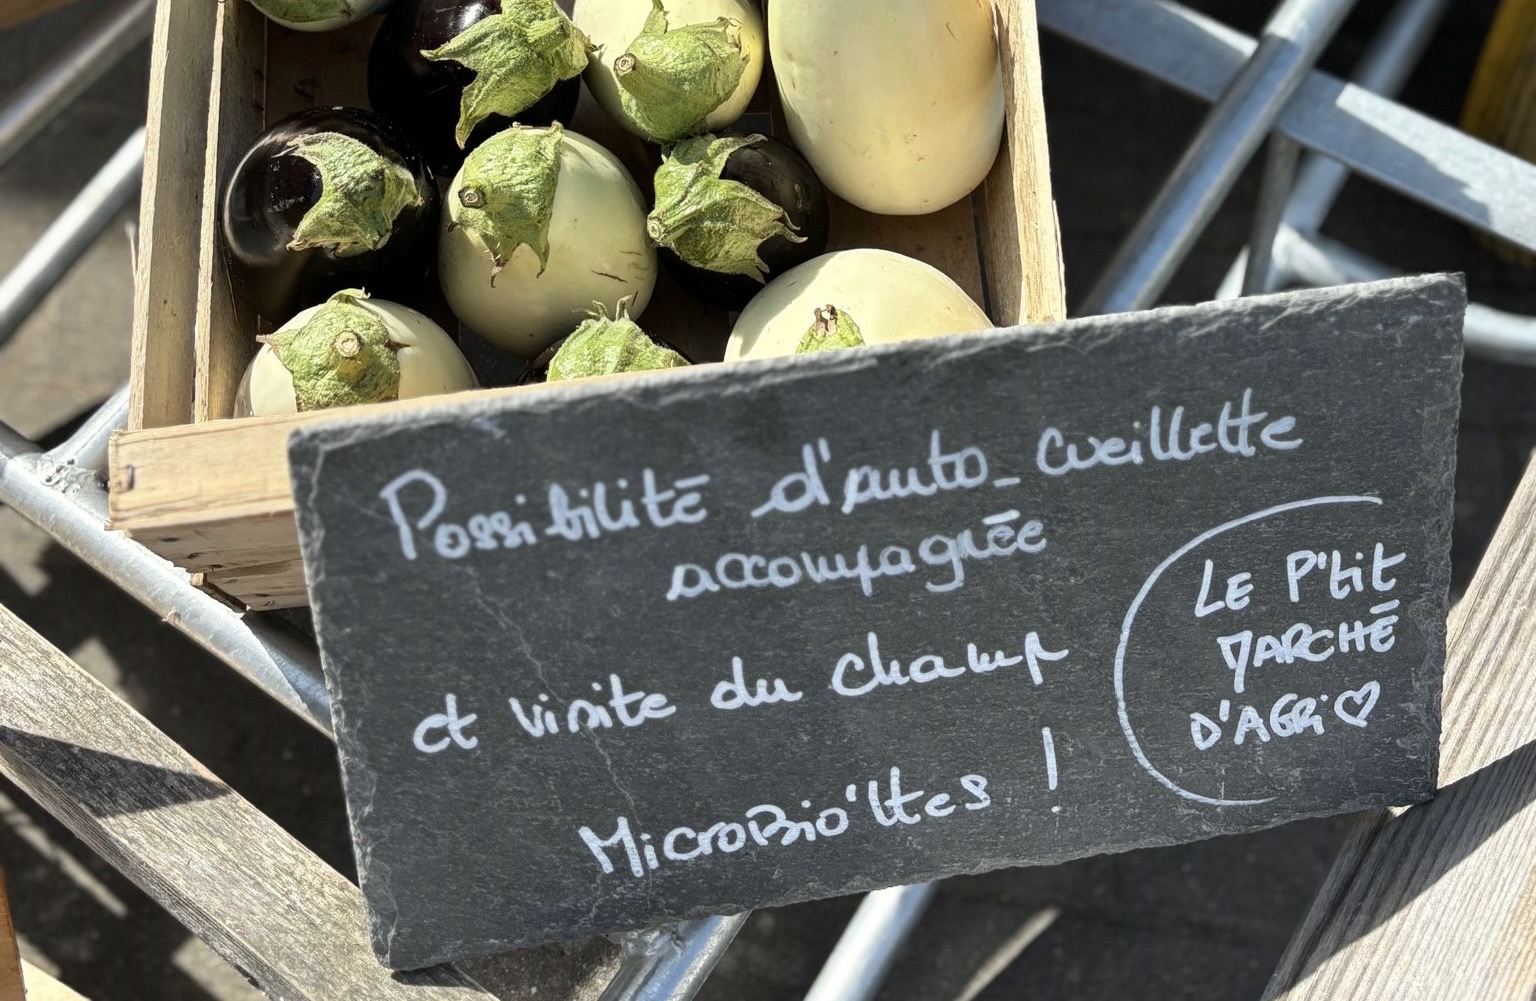 Possibilité d'auto-cueillette
accompagnée
et visite du champ
MicroBio'ltes !
LE P'tit
MARCHÉ
D'AGRi♡